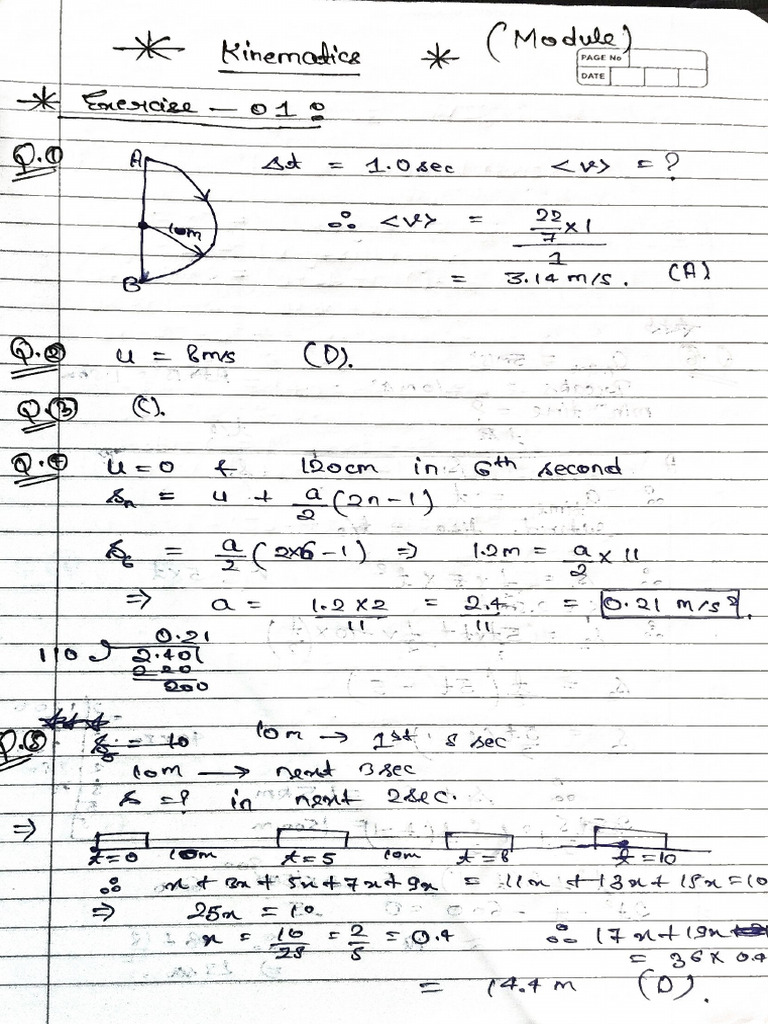 * Kinematics * (Module)
PAGE No
DATE
* Exercise – 01 :
Q.1 A Δt = 1.0 sec <v> = ?
10m
∴ <v> = (22/7 × 1)/1
B = 3.14 m/s. (A)
Q.2 u = 8m/s (D).
Q.3 (C).
Q.4 u = 0 & 120cm in 6th second
Sn = u + a/2 (2n-1)
S6 = a/2 (2×6-1) ⇒ 1.2m = a/2 × 11
⇒ a = 1.2×2/11 = 2.4/11 = 0.21 m/s².
0.21
110 ) 2.40
220
200
Q.5 10m → 1st 5 sec
10m → next 3sec
s = ? in next 2sec.
⇒
t=0 10m t=5 10m t=8 t=10
∴ x+3x+5x+7x+9x = 11x+13x+15x=10
⇒ 25x = 10
x = 10/25 = 2/5 = 0.4 ∴ 17x+19x
= 36×0.4
= 14.4m (D).